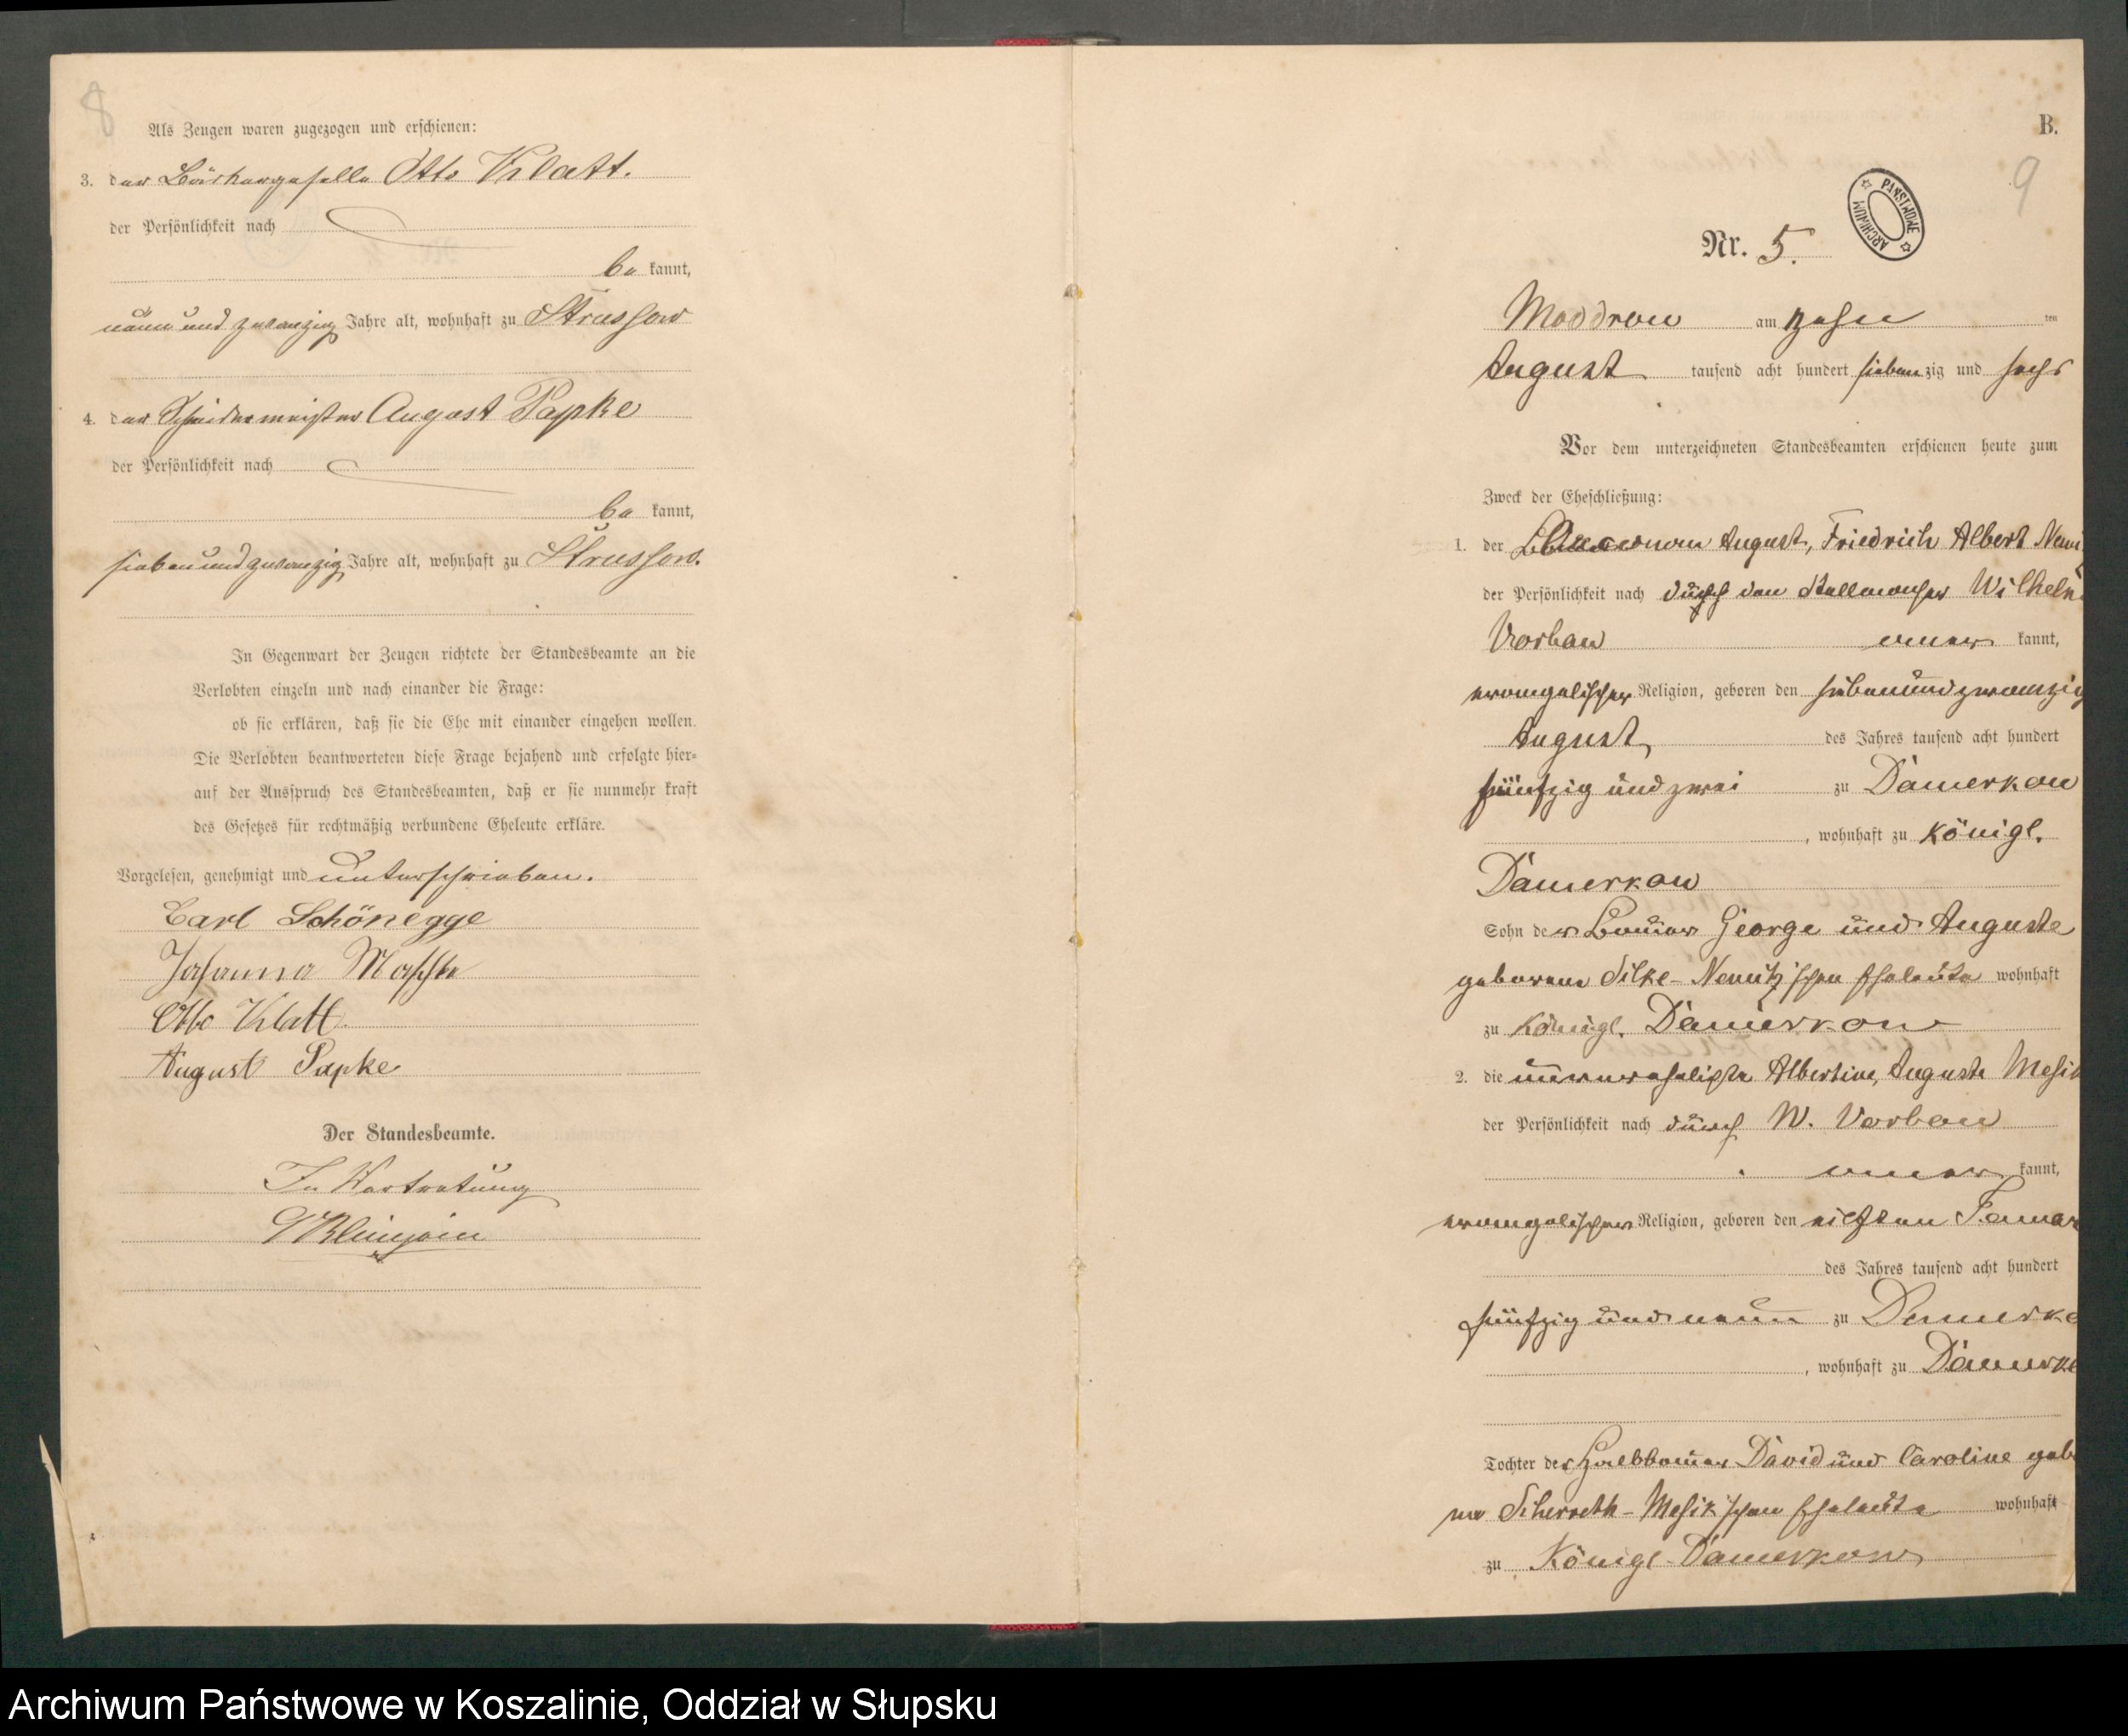 8
Als Zeugen waren zugezogen und erschienen:
3. der Bäckergeselle Otto Klatt.
der Persönlichkeit nach
be kannt,
neun und zwanzig Jahre alt, wohnhaft zu Strussow
4. der Schneidermeister August Papke
der Persönlichkeit nach
be kannt,
sieben und zwanzig Jahre alt, wohnhaft zu Strussow.
In Gegenwart der Zeugen richtete der Standesbeamte an die
Verlobten einzeln und nach einander die Frage:
ob sie erklären, daß sie die Ehe mit einander eingehen wollen.
Die Verlobten beantworteten diese Frage bejahend und erfolgte hier-
auf der Ausspruch des Standesbeamten, daß er sie nunmehr kraft
des Gesetzes für rechtmäßig verbundene Eheleute erkläre.
Vorgelesen, genehmigt und unterschrieben.
Carl Schönegge
Johanna Maschke
Otto Klatt
August Papke
Der Standesbeamte.
In Vertretung
B.
9
ARCHIWUM PAŃSTWOWE
Nr. 5.
Moddrow am zehn ten
August tausend acht hundert sieben zig und sechs
Vor dem unterzeichneten Standesbeamten erschienen heute zum
Zweck der Eheschließung:
1. der August, Friedrich Albert
der Persönlichkeit nach durch den Wilhelm
Vorbau aner kannt,
evangelischer Religion, geboren den siebenundzwanzig
August, des Jahres tausend acht hundert
fünfzig und zwei zu Damerkow
, wohnhaft zu Königl.
Damerkow
Sohn der Bauer George und Auguste
geborene Silke-Nemitz'schen Eheleute wohnhaft
zu Königl. Damerkow
2. die unverehelichte Albertine, Auguste Mesik
der Persönlichkeit nach durch W. Vorbau
aner kannt,
evangelischer Religion, geboren den elften Januar
des Jahres tausend acht hundert
fünfzig und neun zu Damerko
, wohnhaft zu Damerko
Tochter der Halbbauer David und Caroline gebo
ne Scherreth-Mesik'schen Eheleute wohnhaft
zu Königl-Damerkow
Archiwum Państwowe w Koszalinie, Oddział w Słupsku